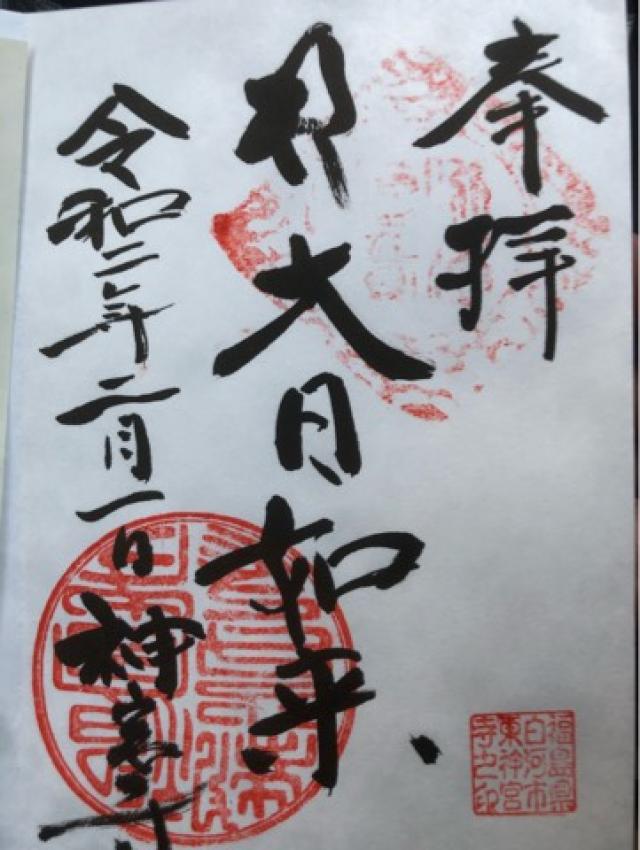 奉拝
大日如来
令和二年二月一日 神宮寺
福島県
白河市
東神宮
寺之印